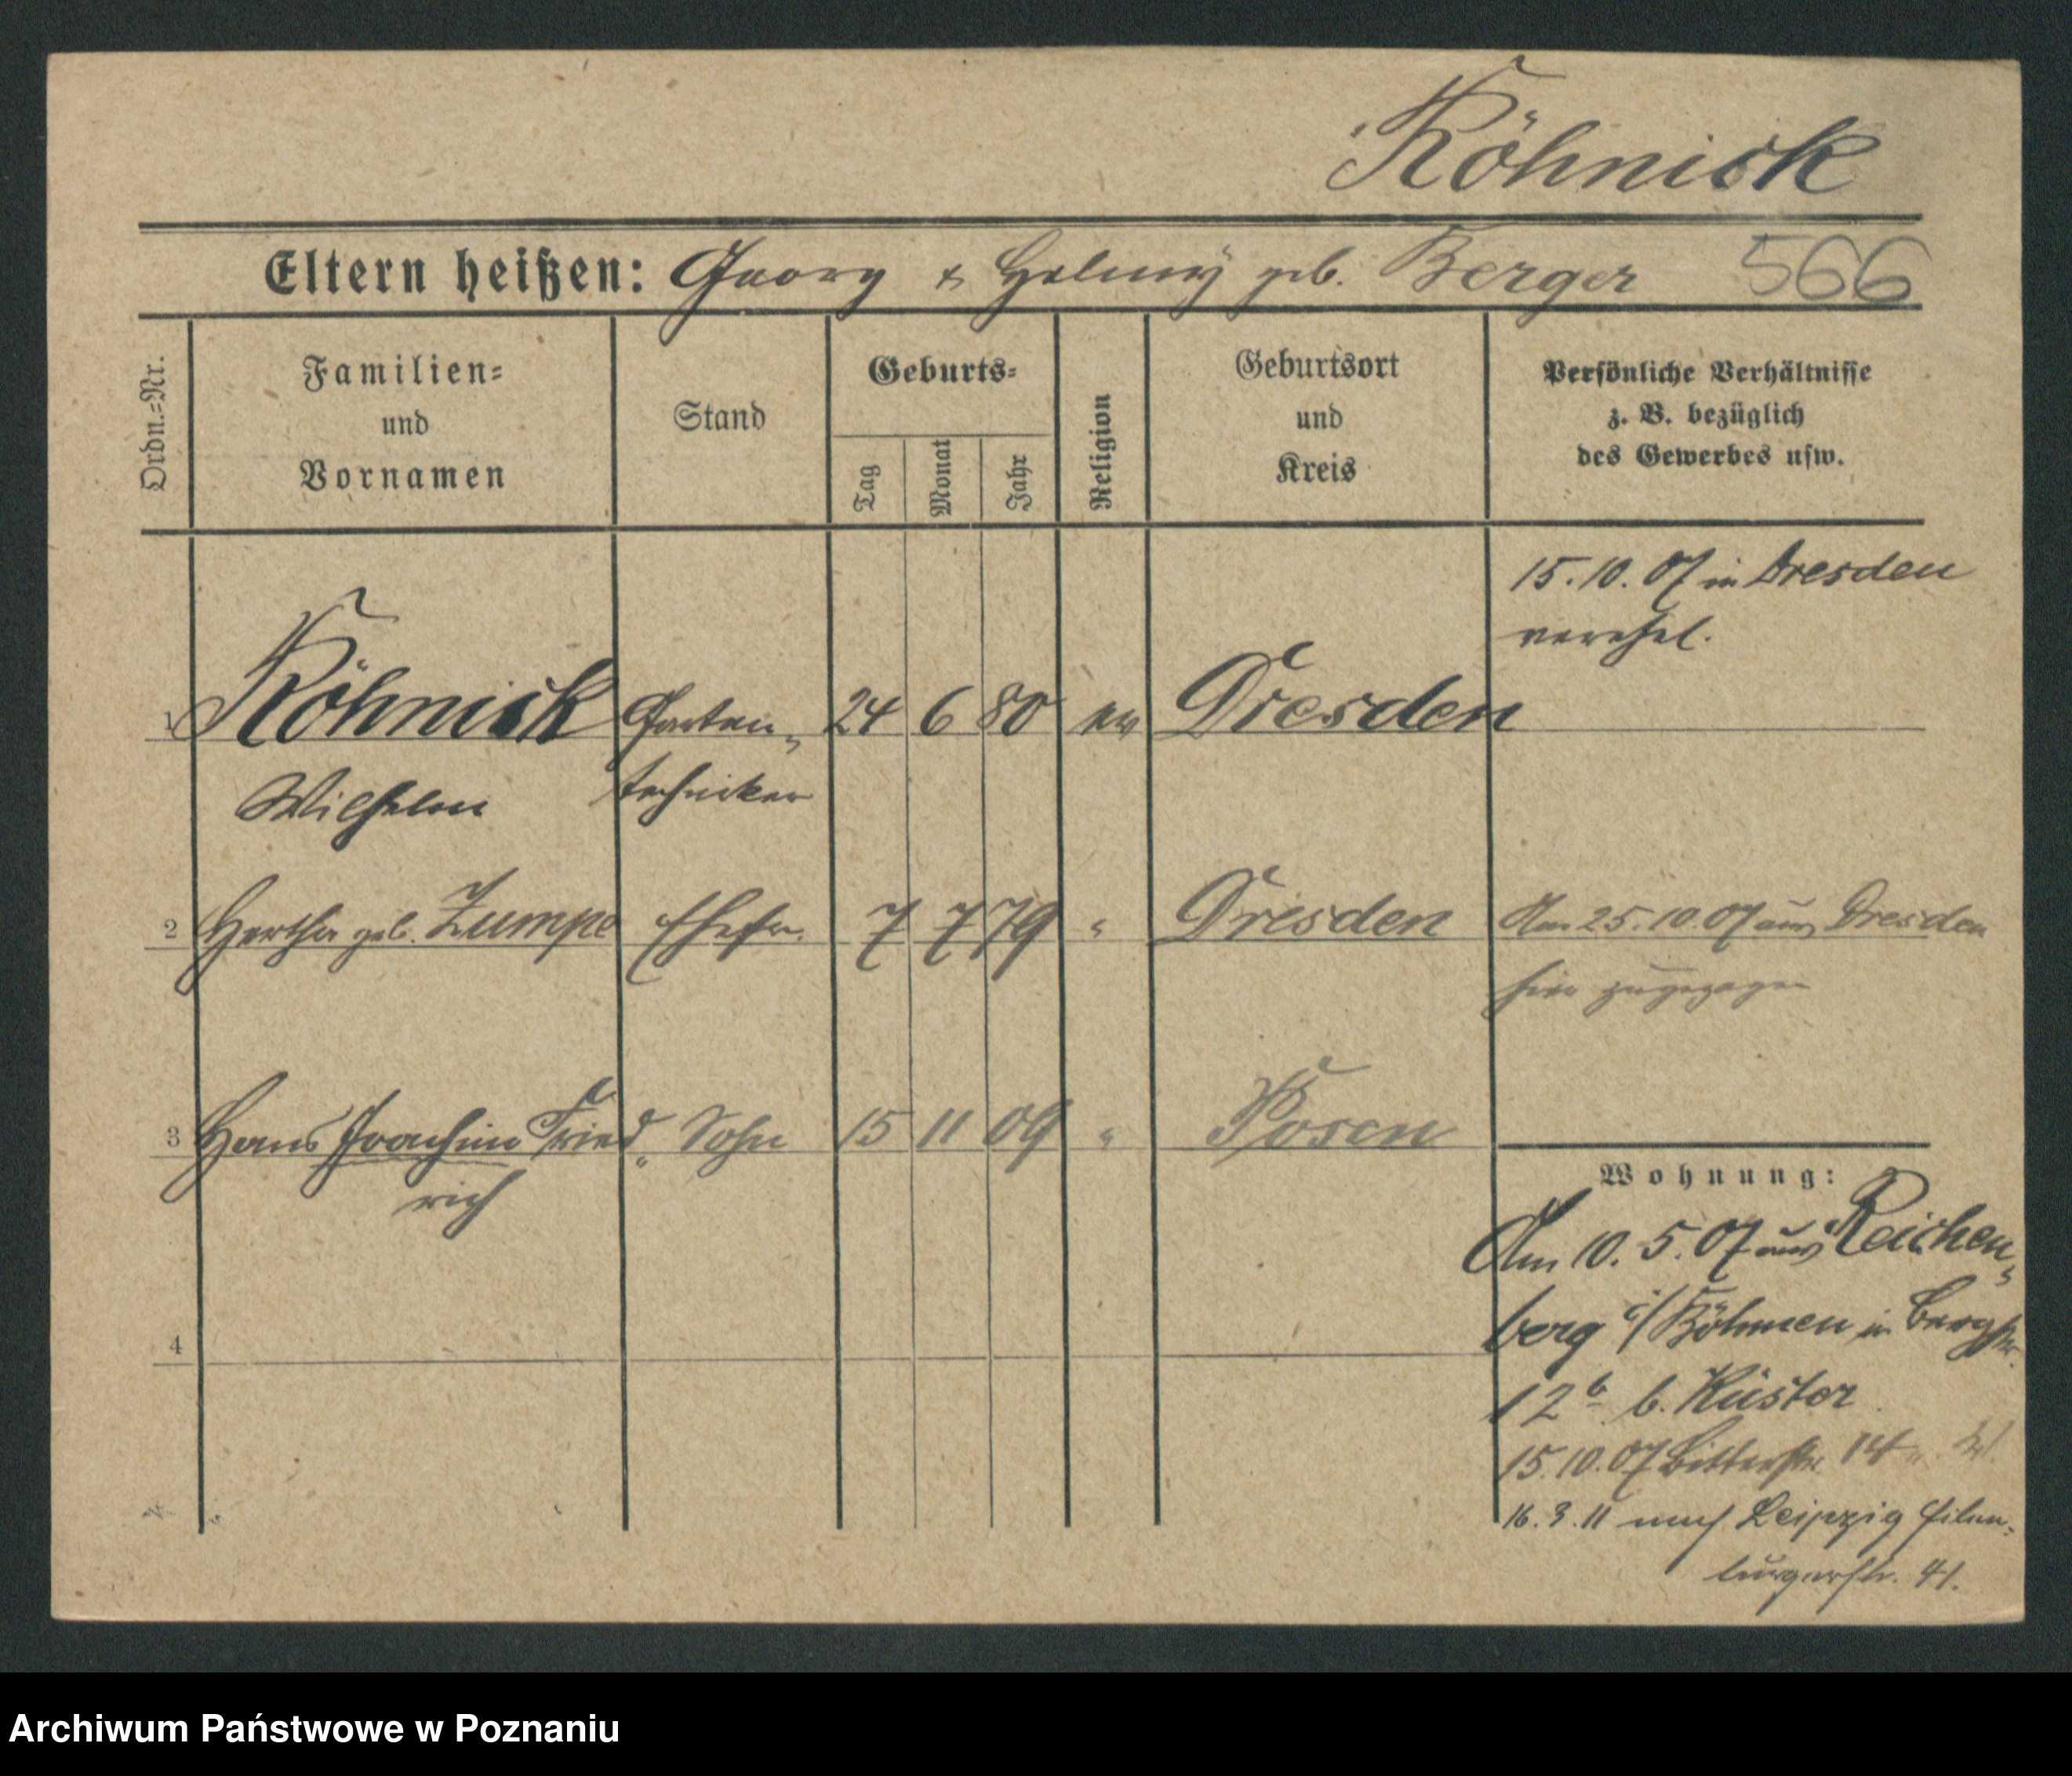 Röhnick
Eltern heißen: Georg & Helmy geb. Berger 566
Ordn.=Nr.
Familien=
und
Vornamen
Stand
Geburts=
Tag
Monat
Jahr
Religion
Geburtsort
und
Kreis
Persönliche Verhältnisse
z. B. bezüglich
des Gewerbes usw.
15.10.07 in Dresden
verehel.
1 Röhnick Garten- 24 6 80 ev Dresden
Wilhelm techniker
2 Hertha geb. Zumpe Ehefr. 7 7 79 " Dresden Am 25.10.07 aus Dresden
hier zugezogen
3 Hans Joachim Fried- Sohn 15 11 09 " Posen
rich
Wohnung:
Am 10.5.07 aus Reichen-
berg i/Böhmen in Bergstr.
4
12b b. Küster
15.10.07 Ritterstr. 14
16.3.11 nach Leipzig Eilen-
burgerstr. 41.
Archiwum Państwowe w Poznaniu